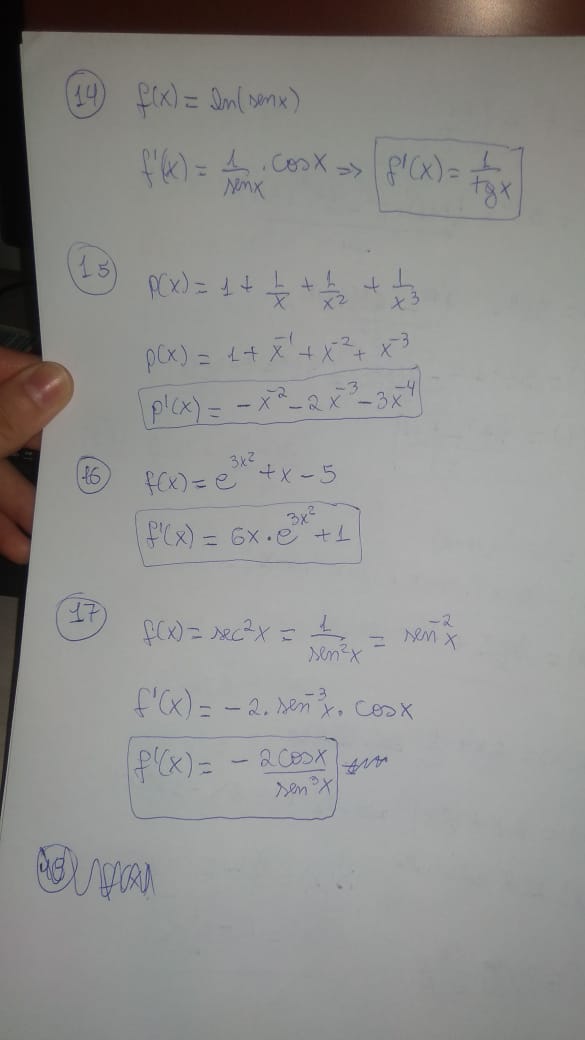 14 f(x) = ln(senx)
f'(x) = 1/senx · cosx => f'(x) = 1/tgx
15 p(x) = 1 + 1/x + 1/x² + 1/x³
p(x) = 1 + x⁻¹ + x⁻² + x⁻³
p'(x) = -x⁻² - 2x⁻³ - 3x⁻⁴
16 f(x) = e^3x² + x - 5
f'(x) = 6x · e^3x² + 1
17 f(x) = sec²x = 1/sen²x = sen⁻²x
f'(x) = -2 · sen⁻³x · cosx
f'(x) = - 2cosx/sen³x